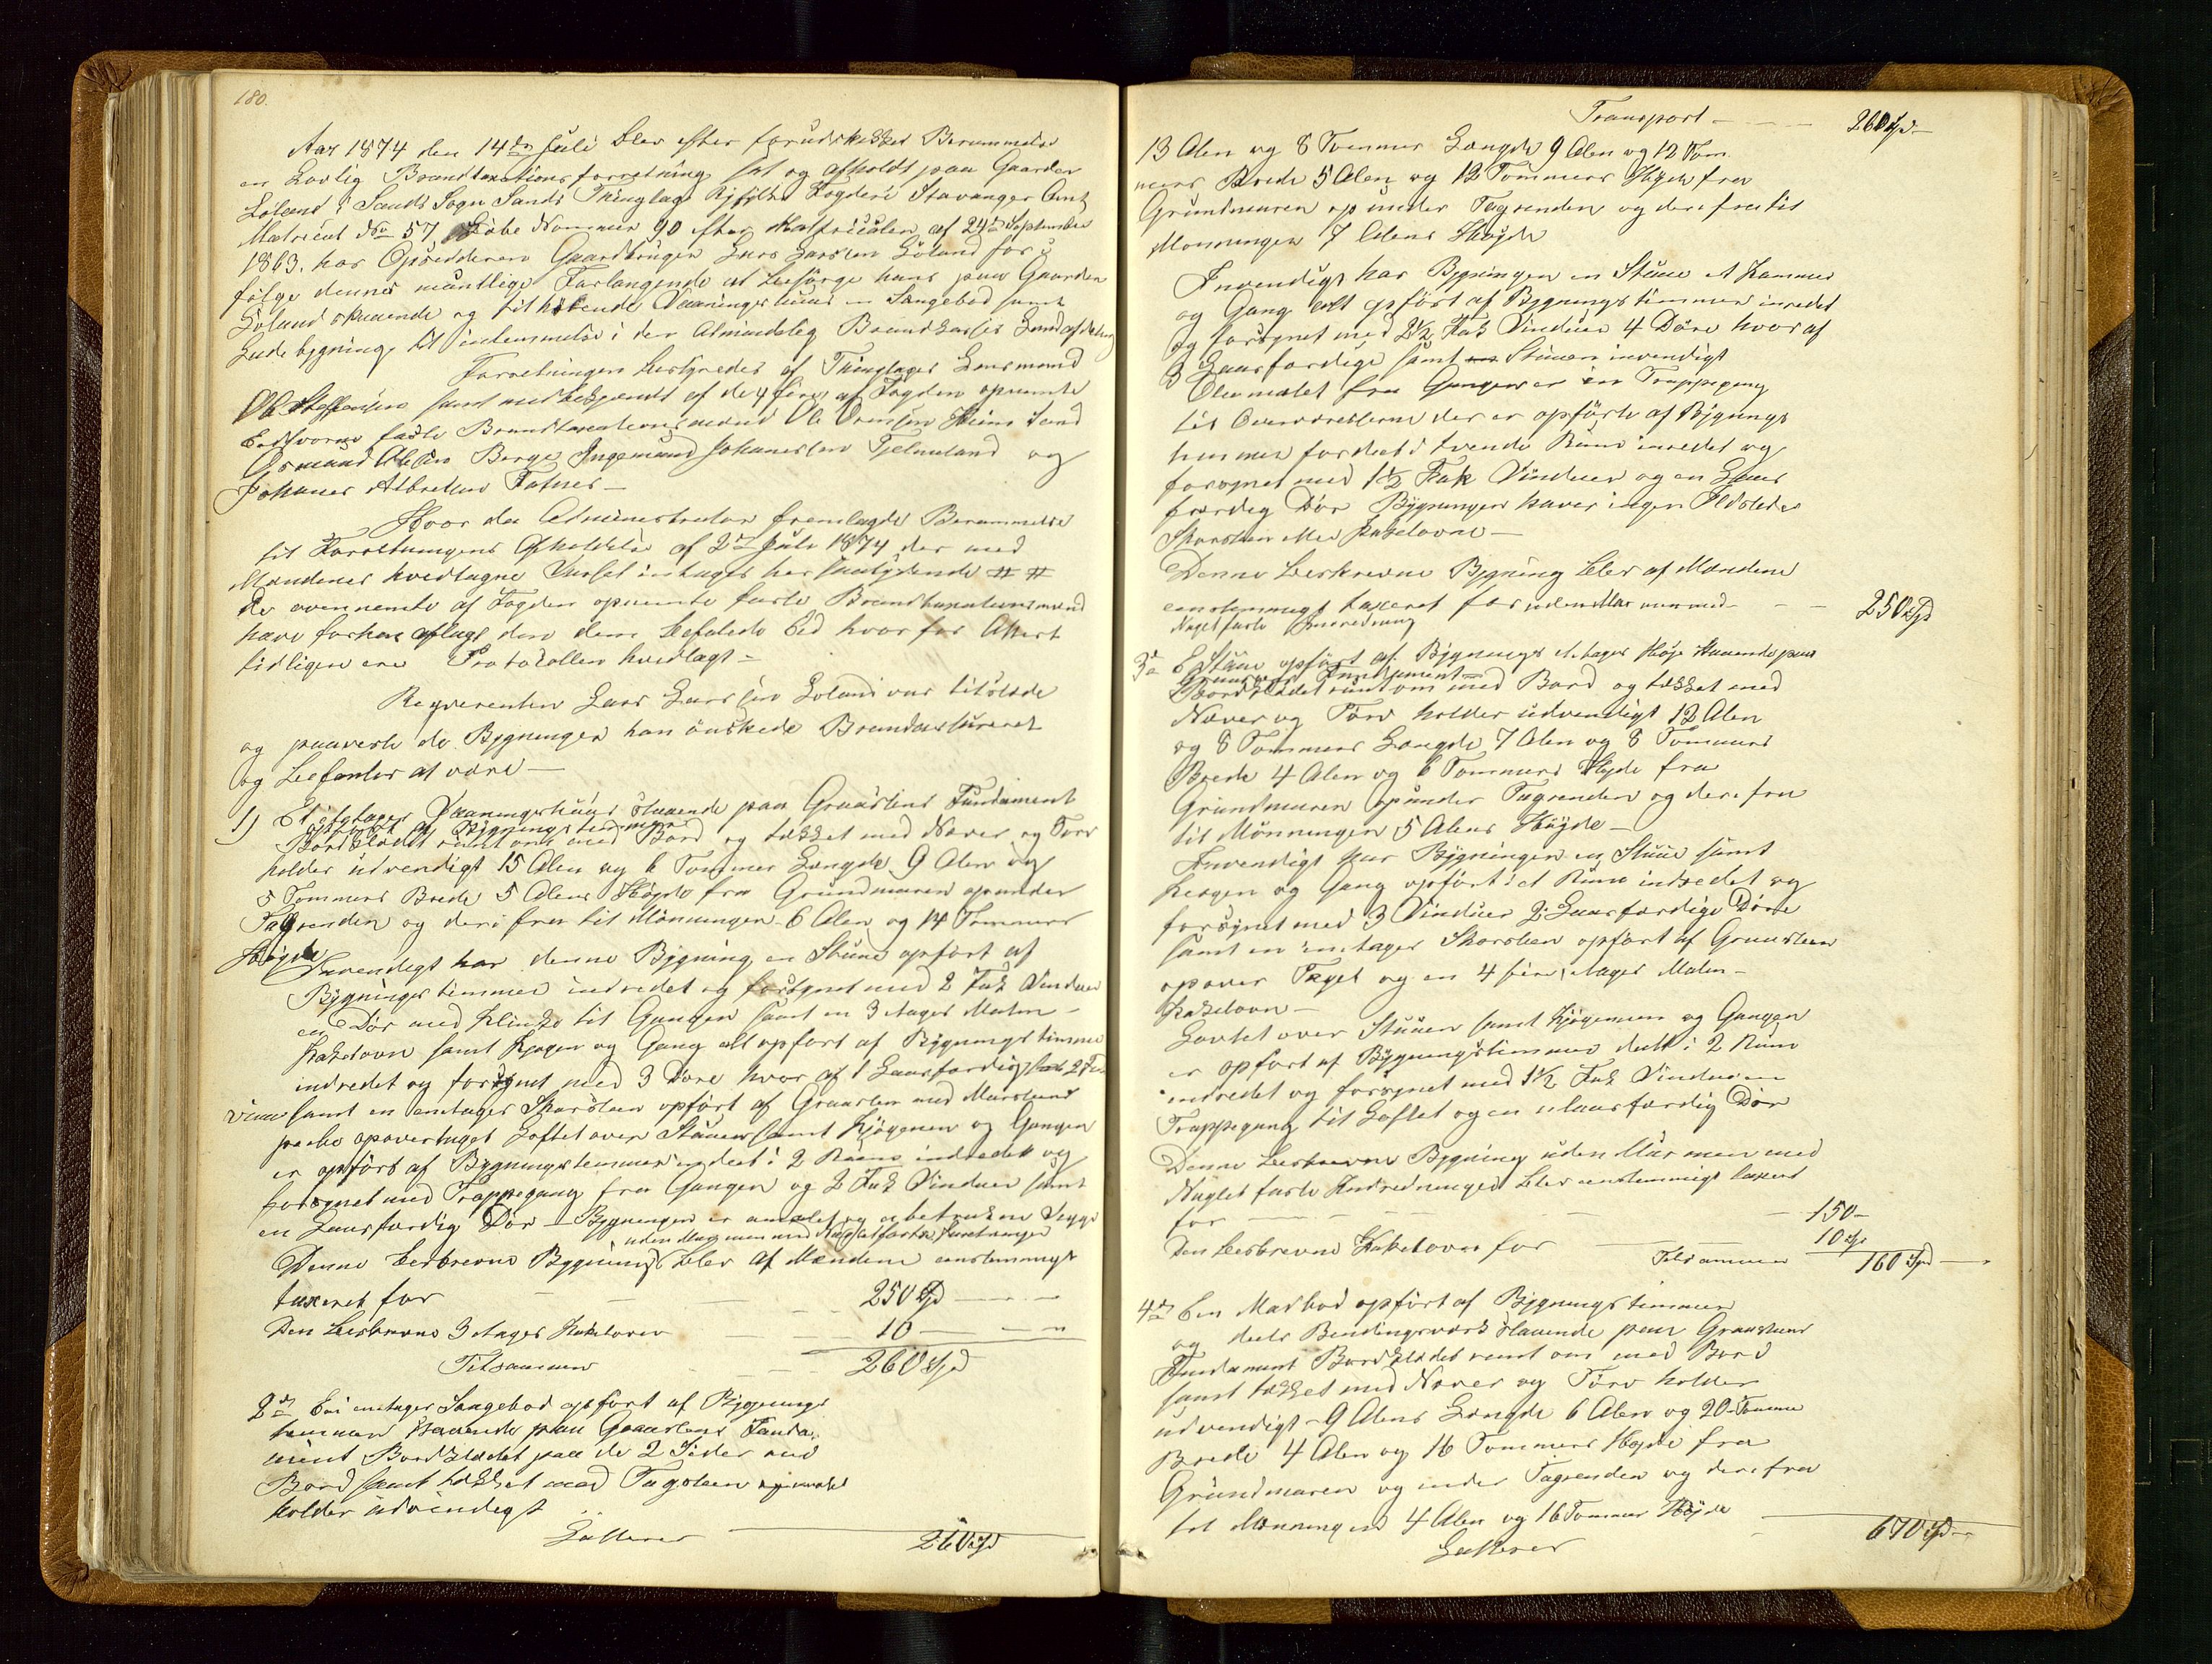 180.
Aar 1874 den 14de Juli blev efter forudskikket Berammelse
en Lovlig Brandtaxationsforretning sat og afholdt paa Gaarden
Löland i Sands Sogn Sands Thinglag Ryfylke Fogderi Stavanger Amt
Matricul No 57, Löbe Nommer 90 efter Matriculen af 24de September
1863. hos Opsidderen Gaardbruger Lars Larsen Löland for i
følge dennes mundtlige Forlangende at besörge hans paa Gaarden
Löland staaende og tilhörende Vaaningshuus en Sængebod samt
Lade bygning til indlemmelse i den Almindelig Brandkasses Landafdeling
Forretningen bestyredes af Thinglages Lensmand
Ole Steffensen samt med bisyende af de 4 fire af Fogden opnemte
Eedsvorne faste Brandtaxationsmænd Ole Sand
Osmund Olsen Berge Ingemund Johanesen Fjelmeland og
Johanes Albretsen
Hvor da Administrator fremlagde Berammelse
til Forretningens Afholdelse af 2den Juli 1874 der med
Mændenes hvedtagne intages her saalydende # #
De ovennemte af Fogden opnemte faste Brandtaxationsmænd
have forhen aflagt den dem befalede Eed hvor for Attest
tidligere ere Protocollen hvedlagt –
Reqverenten Lars Larsen Loland var tilstede
og paaveste de Bygninger han önskede Brandassureret
og befantes at være —
1) Et etages Vaaningshuus staaende paa Graastens Fundament
opfört af Bygningstimmer
Bordklædet rundt om med Bord og tækket med Næver og Torv
holder udvendigt 15 Alen og 6 Tommer Længde 9 Alen og
5 Tommers Brede 5 Alens Höyde fra Grundmuren op under
Tagrenden og derifra til Mönningen 6 Alen og 14 Tommers
Höyde
Invendigt har denne Bygning en Stuue opfört af
Bygnings timmer indredet og forsynet med 2 Fak Vinduer
en Dör med Klinke til Gangen samt en 3 etages Malm-
Kakelovn samt Kjøgen og Gang alt opfört af Bygnings timmer
indredet og forsynet med 3 Döre hvor af 1 Laasfærdig
samt en enetages Skorsten opfört af Graasten med Mursteens
pibe opover taget Loftet over Stuuen samt Kjögenen og Gangen
er opfört af Bygningstimmer indeelt i 2 Rum indredet og
forsynet med Trappegang fra Gangen og 2 Fak Vinduer samt
en Laasfærdig Dör – Bygningen er
uden Muur men med Nagelfaste Indretninger
Denne beskrevne Bygning blev af Mændene eenstemmigt
taxeret for — — — 250 Spd — —
Den beskrevne 3 etages Kakelovn — 10 — —
Tilsammen — 260 Spd
2den En enetages Sængebod opfört af Bygnings
timmer staaende paa Graastens Funda-
ment Bordklædet paa de 2 Sider med
Bord samt tækket med Tagsteen
holder udvendigt
Latteres — 260 Spd
Transport — — — 260 Spd —
13 Alen og 8 Tommer Længde 9 Alen og 12 Tom
mers Brede 5 Alen og 12 Tommers Höyde fra
Grundmuren op under Tagrenden og derifra til
Mønningen 7 Alens Höyde
Invendigt har Bygningen en Stuue et Kammer
og Gang alt opfört af Bygnings timmer inredet
og forsynet med 2½ Fak Vinduer 4 Döre hvor af
3 Laasfærdige samt Stuuen invendigt
Oliemalet fra Gangen er en Trappegang
til Overværelserne der er opförte af Bygnings
timmer fordeelt i tvende Rum inredet og
forsynet med 1½ Fak Vinduer og en Laas
færdig Dör Bygningen haver ingen Ildsteder
Skorsten eller Kakelovne —
Denne beskrevne Bygning blev af Mændene
eenstemmigt taxeret for uden Muur men med — — — 250 Spd
Nagelfaste Inredning
3de E Stuue opfört af Bygnings etages Höje staaende paa
Graastens Fundament
Bordklædet rundt om med Bord og tækket med
Næver og Törv holder udvendigt 12 Alen
og 8 Tommers Længde 7 Alen og 8 Tommers
Brede 4 Alen og 6 Tommers Höyde fra
Grundmuren op under Tagrenden og derifra
til Mönningen 5 Alens Höyde —
Invendigt har Bygningen en Stuue samt
Kjögen og Gang opfört i et Rum indredet og
forsynet med 3 Vinduer 2 Laasfærdige Döre
samt en enetages Skorsteen opfört af Graasteen
opover Taget og en 4 fire etages Malm-
Kakelovn —
Lovtet over Stuuen samt Kjögenen og Gangen
er opfört af Bygningstimmer deelt i 2 Rum
indredet og forsynet med 1½ Fak Vinduer en
Trappegang til Loftet og en ulaasfærdig Dör
Denne beskrevne Bygning uden Mur men med
Naglefaste Indredninger blev eenstemmigt taxeret
for — — — 150 —
Den beskrevne Kakelovn for — 10 Spd
Tilsammen 160 Spd — .
4de En Madbod opfört af Bygnings timmer
og deels Bindingsværk staaende paa Graasteens
Fundament Bordklædet rundt om med Bord
samt tækket med Næver og Törv holder
udvendigt 9 Alens Længde 6 Alen og 20 Tomme
Brede 4 Alen og 16 Tommers Höyde fra
Grundmuren og under Tagrenden og derifra
til Mønningen 4 Alen og 16 Tommer Höyde
Latteres — 670 Spd —